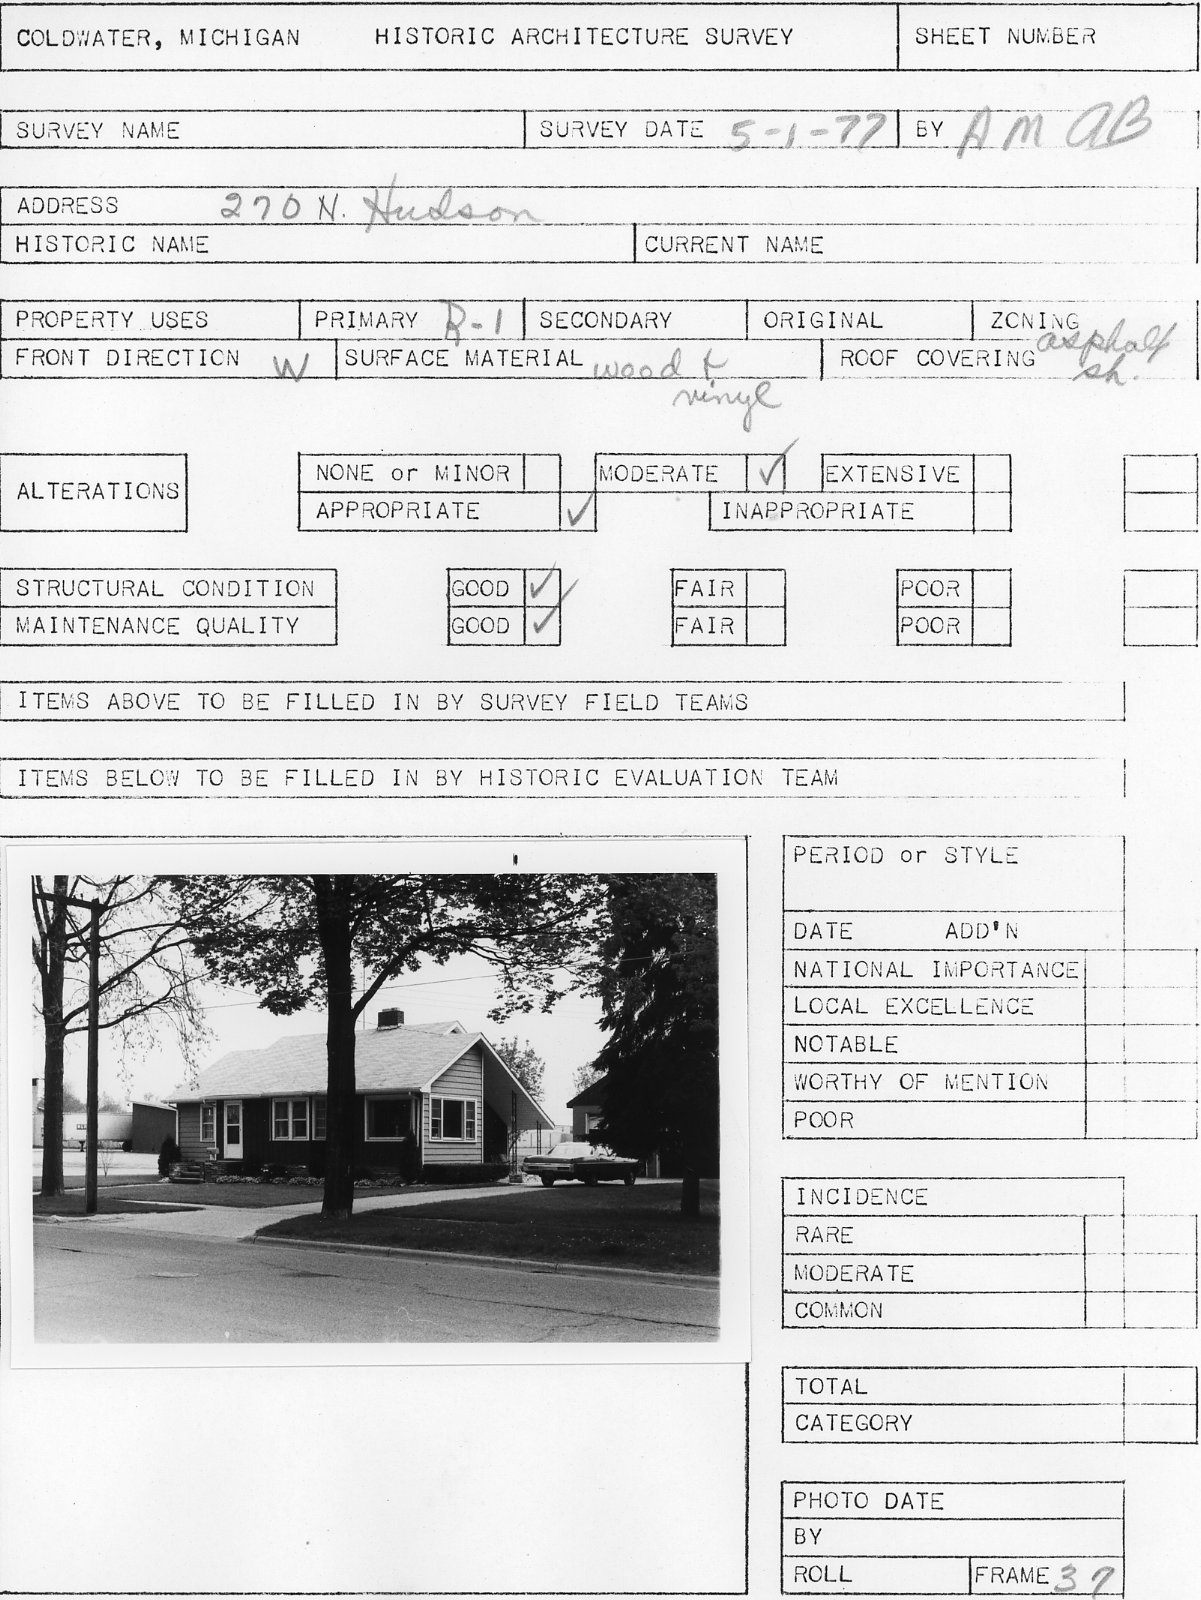 COLDWATER, MICHIGAN HISTORIC ARCHITECTURE SURVEY SHEET NUMBER
SURVEY NAME SURVEY DATE 5-1-77 BY AM AB
ADDRESS 270 N. Hudson
HISTORIC NAME CURRENT NAME
PROPERTY USES PRIMARY R-1 SECONDARY ORIGINAL ZONING
FRONT DIRECTION W SURFACE MATERIAL wood & vinyl ROOF COVERING asphalt sh.
ALTERATIONS
NONE or MINOR MODERATE ✓ EXTENSIVE
APPROPRIATE ✓ INAPPROPRIATE
STRUCTURAL CONDITION GOOD ✓ FAIR POOR
MAINTENANCE QUALITY GOOD ✓ FAIR POOR
ITEMS ABOVE TO BE FILLED IN BY SURVEY FIELD TEAMS
ITEMS BELOW TO BE FILLED IN BY HISTORIC EVALUATION TEAM
PERIOD or STYLE
DATE ADD'N
NATIONAL IMPORTANCE
LOCAL EXCELLENCE
NOTABLE
WORTHY OF MENTION
POOR
INCIDENCE
RARE
MODERATE
COMMON
TOTAL
CATEGORY
PHOTO DATE
BY
ROLL FRAME 37